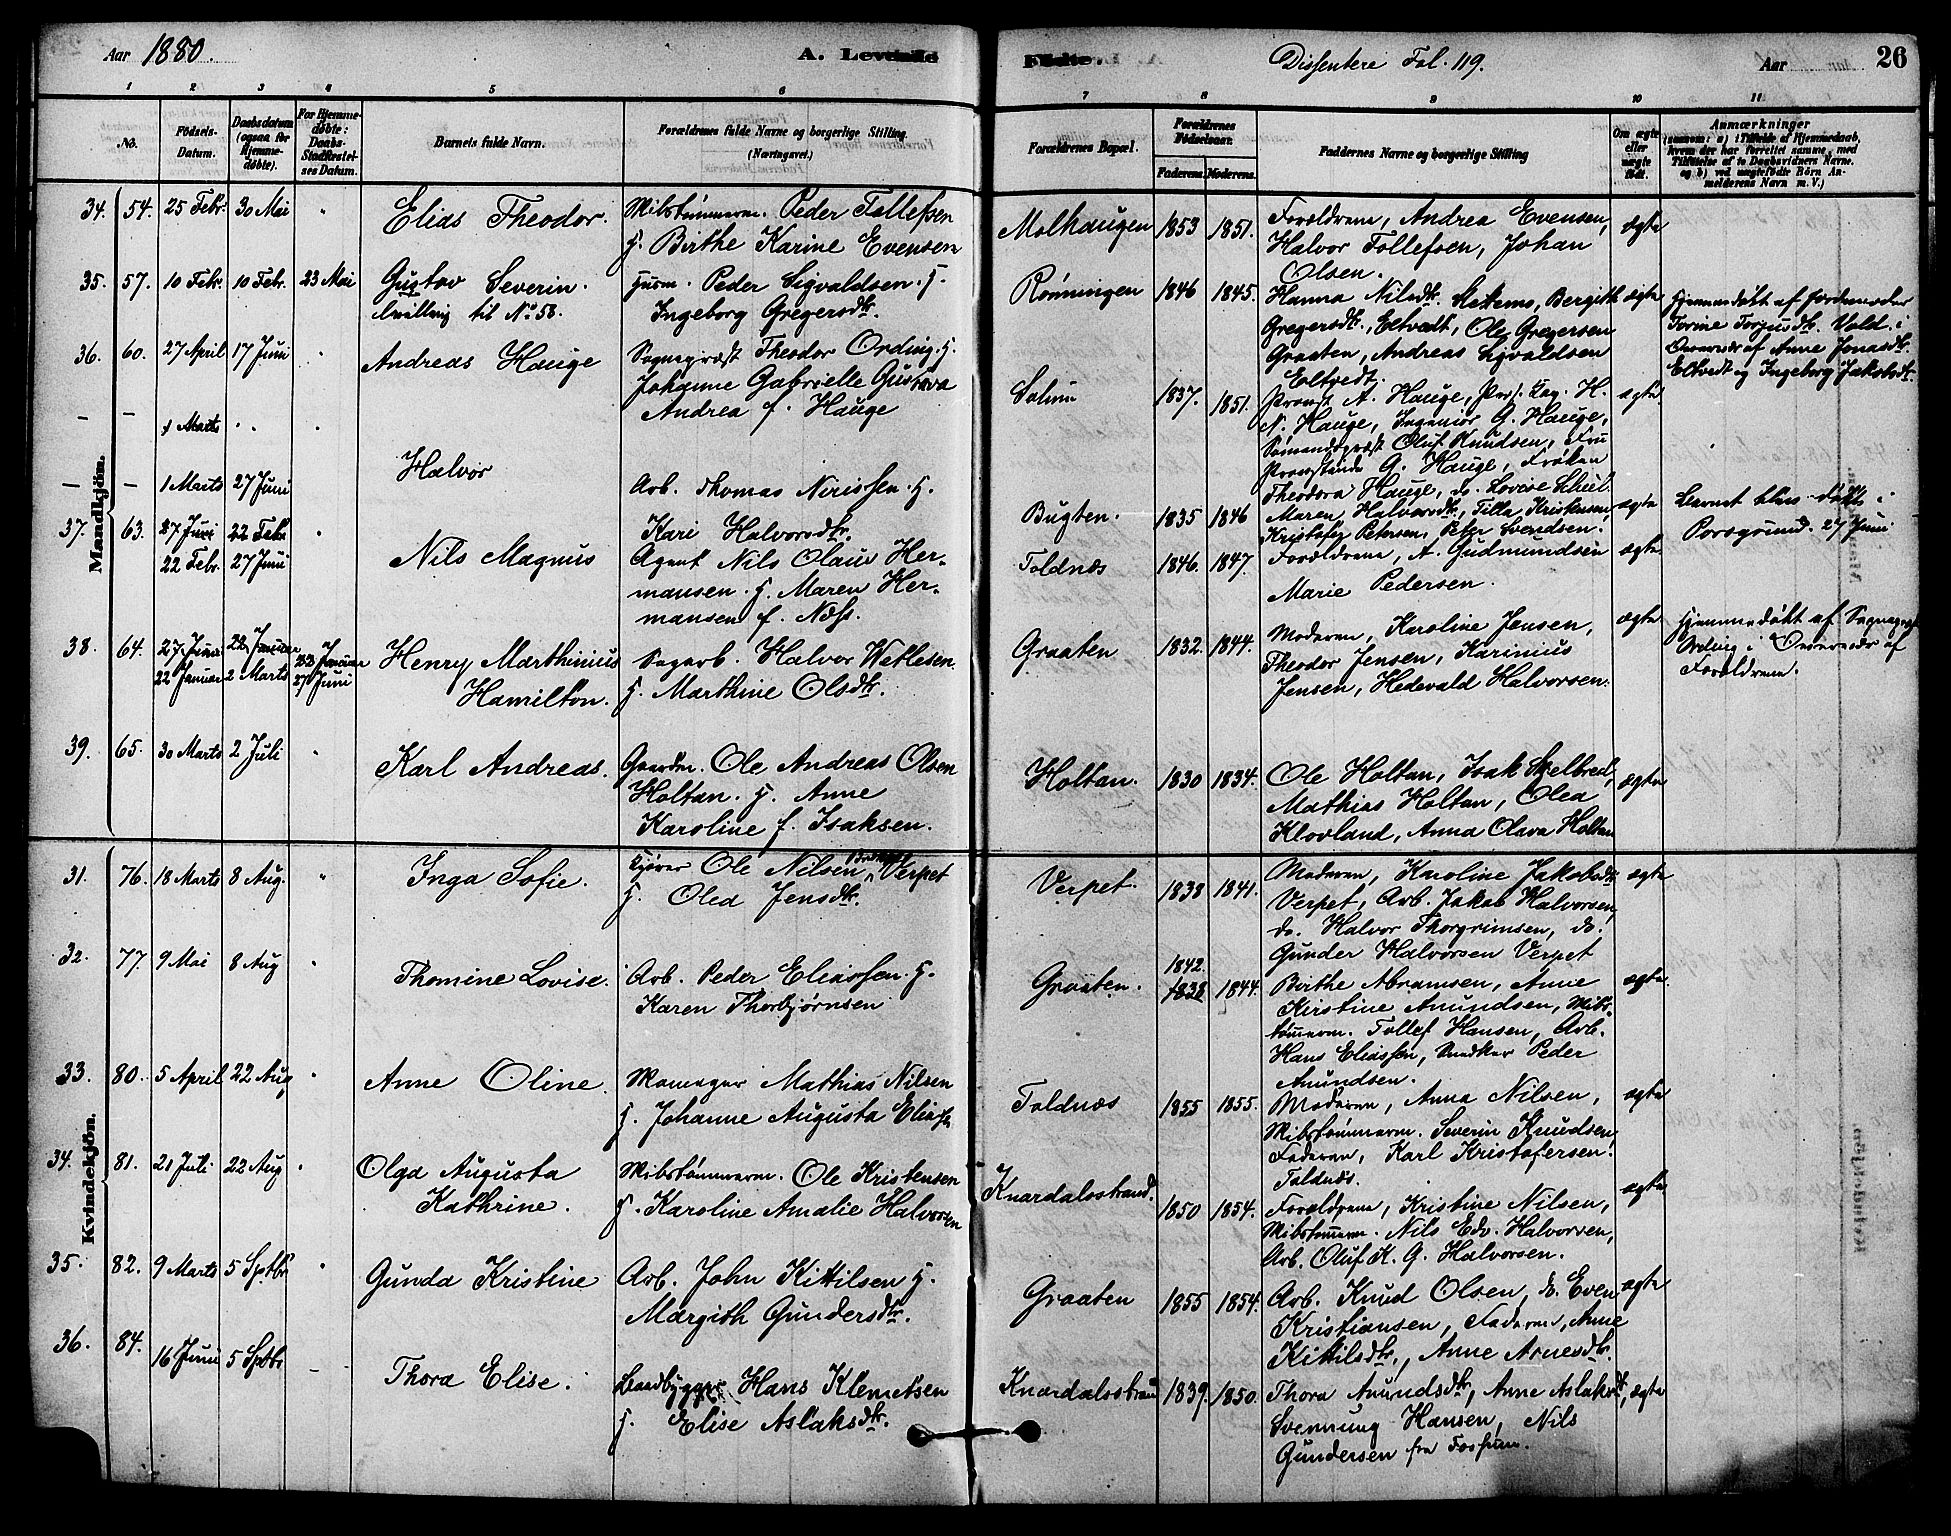 Aar 1880.
A. Levende
Fødte.
Dissentere Fol. 119.
Aar
26
1 2 3 4 5 6 7 8 9 10 11
No.
Fødsels-
Datum.
Daabsdatum
(ogsaa for
Hjemme-
døbte).
For Hjemme-
døbte:
Daabs-
Stadfæstel-
ses Datum.
Barnets fulde Navn.
Forældrenes fulde Navne og borgerlige Stilling.
(Næringsvei.)
Forældrenes Bopæl.
Forældrenes
Fødselsaar.
Faderens. Moderens.
Faddernes Navne og borgerlige Stilling
Om ægte
eller
uægte
født.
Anmærkninger
Mandkjøn.
34. 54. 25 Febr. 30 Mai " Elias Theodor. Peder Tollefsen
H. Birthe Karine Evensen
Molhaugen 1853 1851. Forældrene, Andrea Evensen, ægte
Halvor Tollefsen, Johan
Olsen.
35. 57. 10 Febr. 10 Febr. 23 Mai Gustav Severin. Husm. Peder Sigvaldsen. H.
Tvilling til No 58. Ingeborg Gregersdtr.
Rønningen 1846 1845. Hanna Nilsdtr. Bergith ægte
Gregersdtr., Eltvedt, Ole Gregersen
Graaten, Andreas Sigvaldsen
Eltvedt.
Hjemmedøbt af Jordemoder
Torine Torjusdtr. Vold i
af Anne Jonasdtr.
Eltvedt og Ingeborg Jakobsdtr.
36. 60. 27 April 17 Juni " Andreas Hauge Sognepræst Theodor Ording. H.
Johanne Gabrielle Gustava
Andrea f. Hauge
Solum 1837. 1851. Provst A. Hauge, H. ægte
N. Hauge, Ingeniør G. Hauge,
Sømandspræst Oluf Knudsen, Fru
G. Hauge, Frøken
Theodora Hauge, do. Lovise
– – 1 Marts " "
– – 1 Marts 27 Juni Halvor Arb. Thomas Nirissen. H.
Kari Halvorsdtr.
Bugten. 1835 1846 Maren Halvorsdtr., Tilla Kristensen ægte
Kristofer Petersen, Peter Svendsen.
Barnet blev døbt i
Porsgrund. 27 Juni
37. 63. 27 Juni 22 Febr. "
22 Febr. 27 Juni Nils Magnus Agent Nils Olaus Her-
mansen. H. Maren Her-
mansen f. Næss.
Toldnæs 1846. 1847. Forældrene, A. Gudmundsen ægte
Marie Pedersen.
38. 64. 27 Juni 22 Januar 22 Januar
22 Januar 2 Marts 27 Juni
Henry Marthinius Sagarb. Halvor Wetlesen.
Hamilton. H. Marthine Olsdtr.
Graaten 1832. 1844. Moderen, Karoline Jensen, ægte
Theodor Jensen, Karinius
Jensen, Hedevald Halvorsen.
Hjemmedøbt af Sognepr.
Ording i af
Forældrene.
39. 65. 30 Marts 2 Juli " Karl Andreas. Gaardm. Ole Andreas Olsen
Holtan. H. Anne
Karoline f. Isaksen.
Holtan. 1830 1834. Ole Holtan, Isak Skelbred, ægte
Mathias Holtan, Olea
Klovland, Anna Olava Holtan
Kvindekjøn.
31. 76. 18 Marts 8 Aug. " Inga Sofie. Ole Nilsen Verpet
H. Olea Jensdtr.
Verpet. 1838 1841. Moderen, Karoline Jakobsdtr. ægte
Verpet, Arb. Jakob Halvorsen,
do. Halvor Thorgrimsen, do.
Gunder Halvorsen Verpet
32. 77. 9 Mai 8 Aug " Thomine Lovise. Arb. Peder Eliassen. H.
Karen Thorbjørnsen
Graaten. 1842. 1838 1844. Birthe Abramsen, Anne ægte.
Kirstine Amundsen, Mibs-
tømmerm. Tollef Hansen, Arb.
Hans Eliassen, Snedker Peder
Amundsen.
33. 80. 5 April 22 Aug " Anne Oline. Mathias Nilsen
H. Johanne Augusta Eliassen
Toldnæs 1855 1855. Moderen, Anna Nilsen, ægte
Mibstømmerm. Severin Knudsen,
Faderen, Karl Kristofersen.
Toldnæs.
34. 81. 21 Juli 22 Aug " Olga Augusta Mibstømmerm. Ole Kristensen
Kathrine. H. Karoline Amalie Halvorsen
Knardalsstrand. 1850 1854. Forældrene, Kristine Nilsen, ægte
Mibstømmerm. Nils Edv. Halvorsen,
Arb. Oluf K. G. Halvorsen.
35. 82. 9 Marts 5 Sptbr " Gunda Kristine Arb. John Kittilsen H.
Margith Gundersdtr.
Graaten 1855 1854. Arb. Knud Olsen, do. Even ægte
Kristiansen, Faderen, Anne
Kittilsdtr., Anne Arnesdtr.
36. 84. 16 Juni 5 Sptbr – Thora Elise. Baadbygger Hans Klemetsen
H. Elise Aslaksdtr.
Knardalsstrand 1839. 1850. Thora Amundsdtr., Anne Aslaksdtr., ægte
Svennung Hansen, Nils
Gundersen fra Fossum.